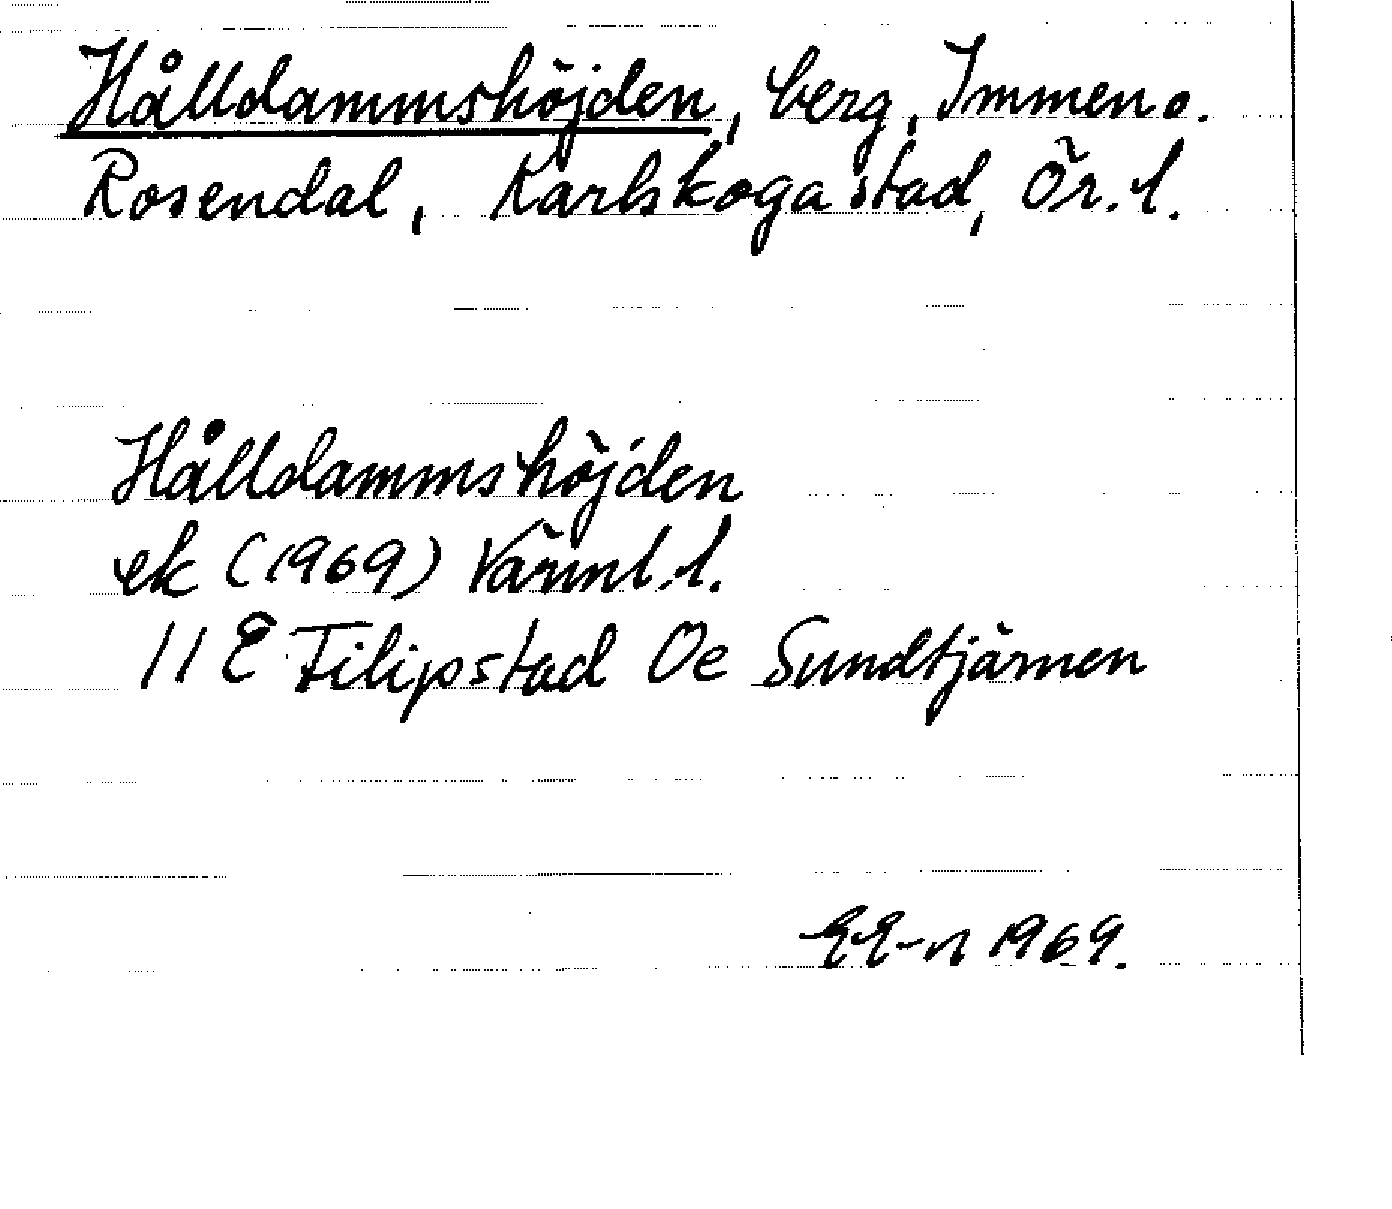 Hålldammshöjden, berg, Immen o.
Rosendal, Karlskoga stad, Ör. l.
Hålldammshöjden
ek (1969) Värml. l.
11 E Filipstad Oe Sundtjärnen
EE-n 1969.